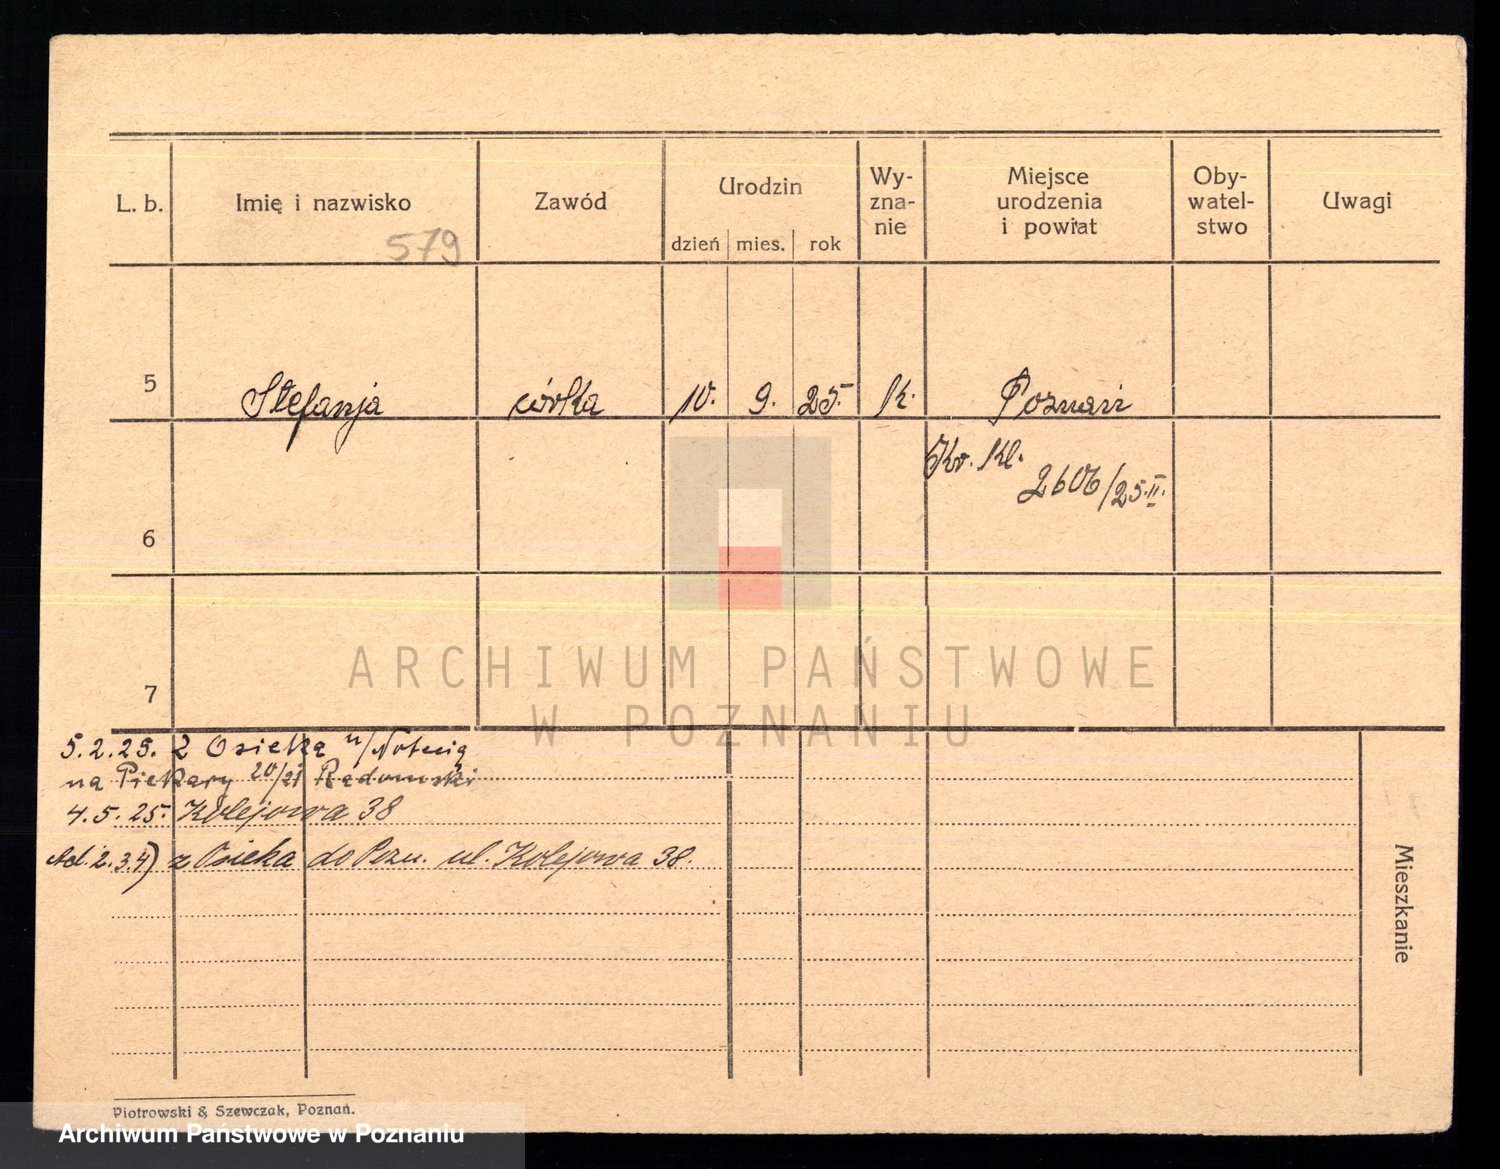 L. b. Imię i nazwisko Zawód Urodzin Wy-zna-nie Miejsce urodzenia i powiat Oby-watel-stwo Uwagi
dzień mies. rok
579
5 Stefanja córka 10. 9. 25. k. Poznań
Kl. 2606/25.II.
6
7
ARCHIWUM PAŃSTWOWE
W POZNANIU
5.2.25. z Osieka n/Notecią
na Piekary 20/21 Radomski
4.5.25. Kolejowa 38
Ad. 2.3.4) z Osieka do Pozn. ul. Kolejowa 38.
Mieszkanie
Piotrowski & Szewczak, Poznań.
Archiwum Państwowe w Poznaniu